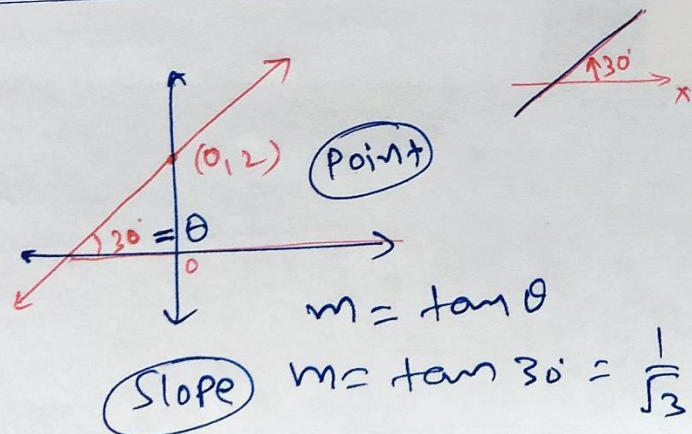 ↑30°
x
(0,2)
Point
30° = θ
0
m = tan θ
Slope m = tan 30° = 1/√3